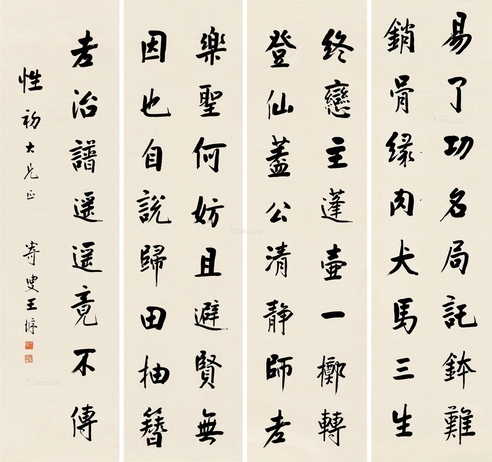 易了功名局託鉢難
銷骨緣肉犬馬三生
終戀主蓬壺一擲轉
登仙蓋公清靜師老
樂聖何妨且避賢無
因也自說歸田抽簪
老治譜遥遥竟不傳
性初大兄正 寄叟王垿